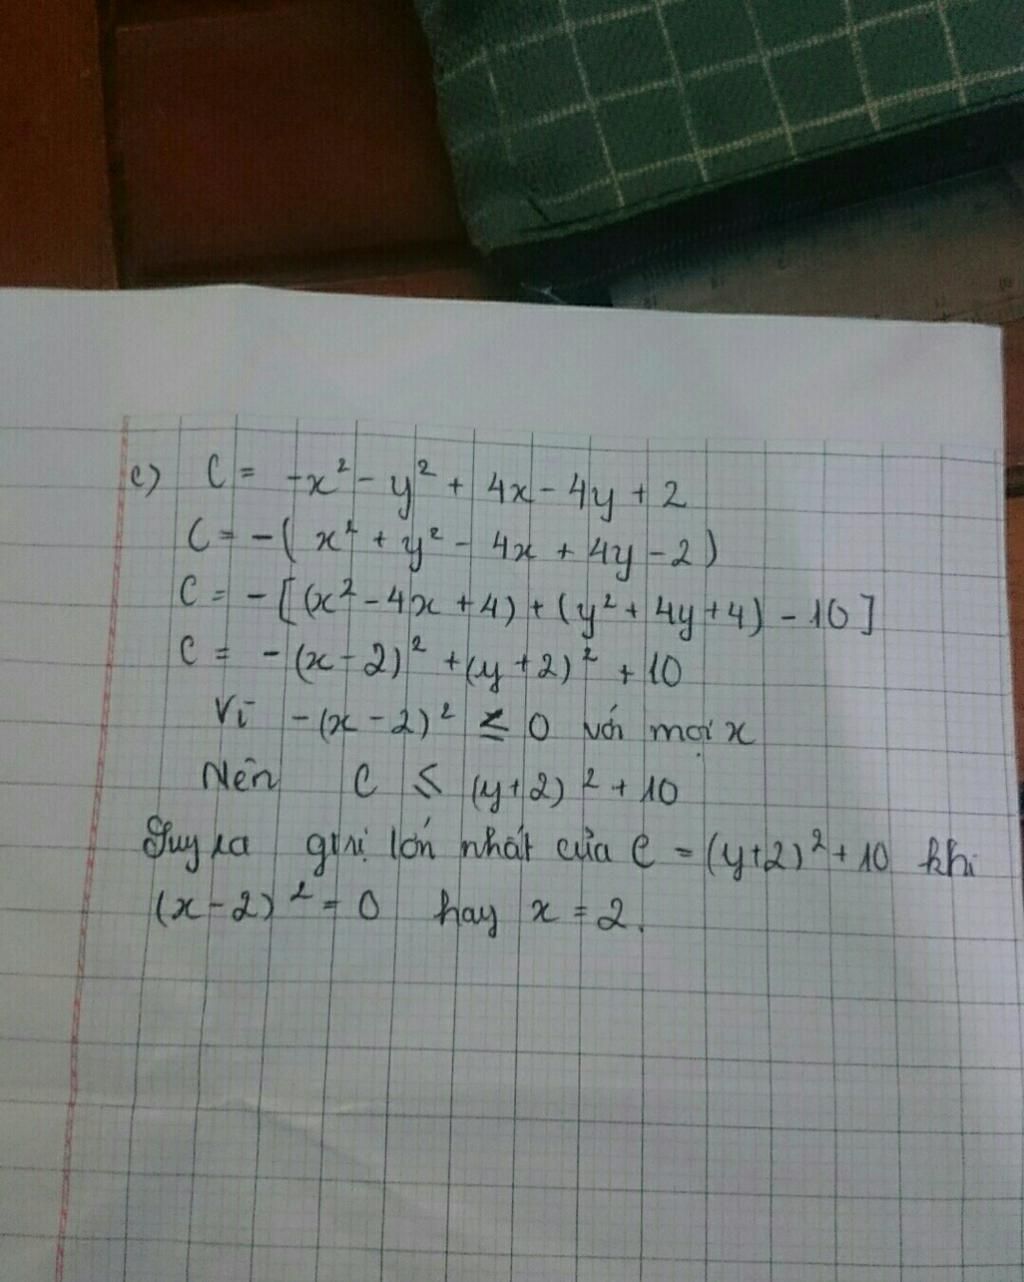 c) C = -x² - y² + 4x - 4y + 2
C = -( x² + y² - 4x + 4y - 2 )
C = - [ (x² - 4x + 4) + (y² + 4y + 4) - 10 ]
C = - (x - 2)² + (y + 2)² + 10
Vì - (x - 2)² ≤ 0 với mọi x
Nên C ≤ (y+2)² + 10
Suy ra gtrị lớn nhất của C = (y+2)² + 10 khi
(x - 2)² = 0 hay x = 2.